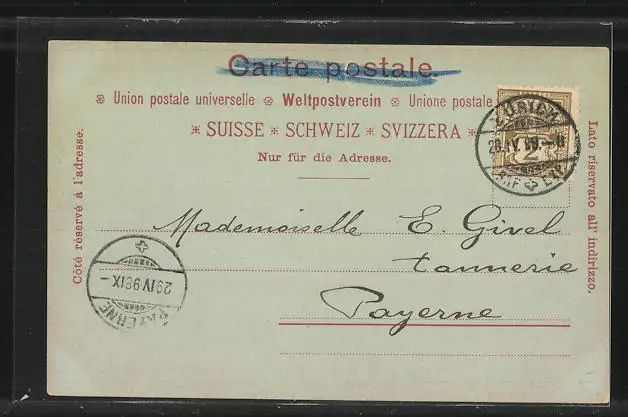 Carte postale.
Union postale universelle Weltpostverein Unione postale
SUISSE * SCHWEIZ * SVIZZERA
Nur für die Adresse.
Côté réservé à l'adresse.
Lato riservato all' indirizzo.
Mademoiselle E. Givel
tannerie
Payerne
ZÜRICH
2
PAYERNE
29 IV 98 IX –